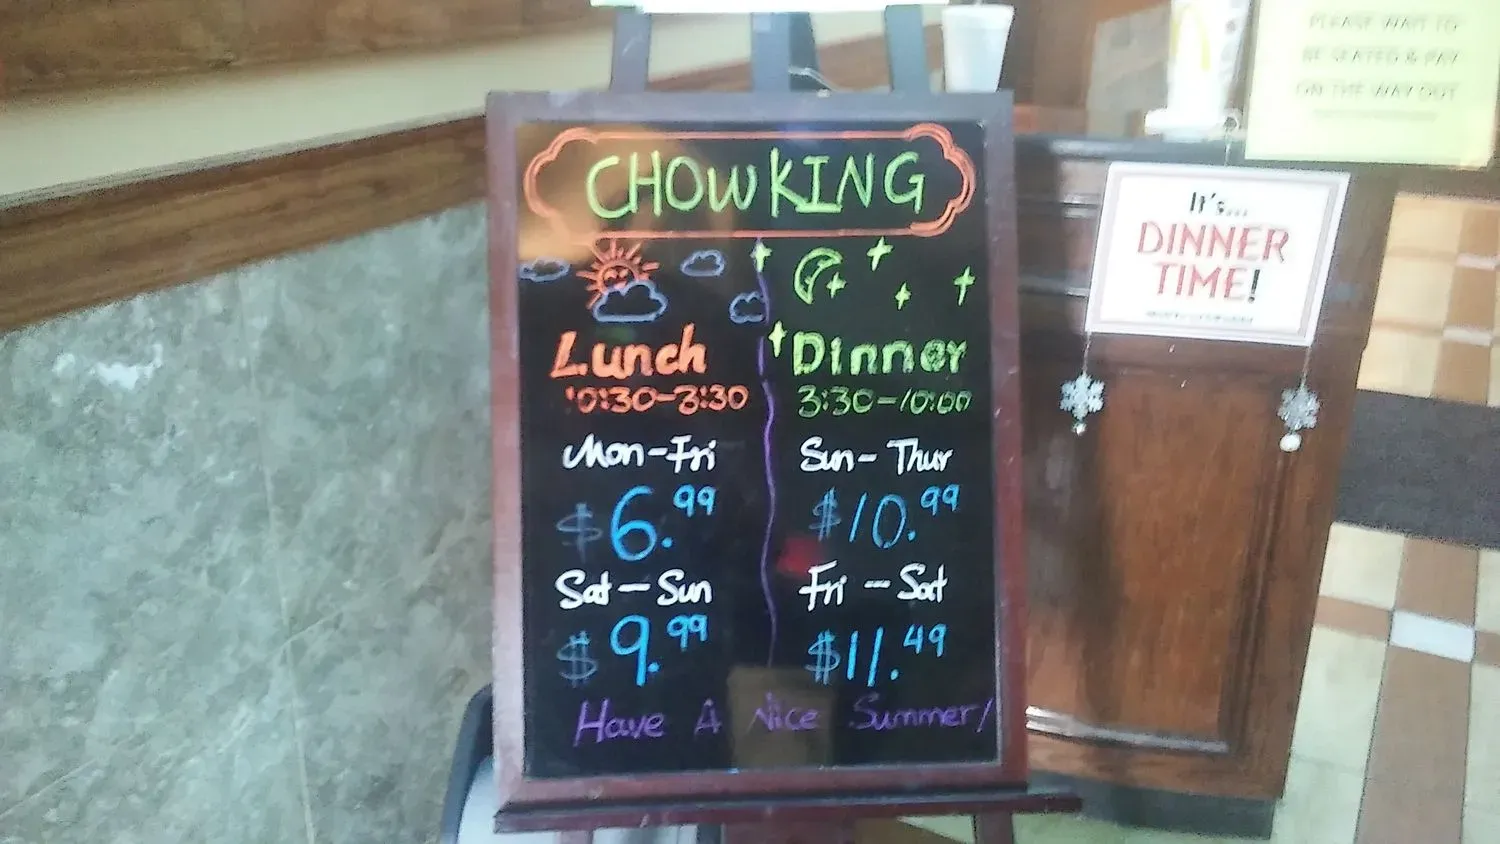 CHOWKING
Lunch
10:30-3:30
Mon-Fri
$6.99
Sat-Sun
$9.99
Dinner
3:30-10:00
Sun-Thur
$10.99
Fri-Sat
$11.49
Have A Nice Summer!
It's...
DINNER
TIME!
PLEASE WAIT TO
BE SEATED & PAY
ON THE WAY OUT